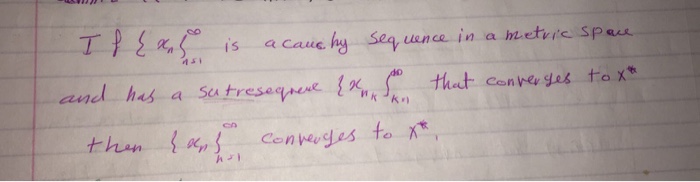 If {xₙ}∞ₙ₌₁ is a cauchy sequence in a metric space
and has a subsequence {xₙₖ}∞ₖ₌₁ that converges to x*
then {xₙ}∞ₙ₌₁ converges to x*.